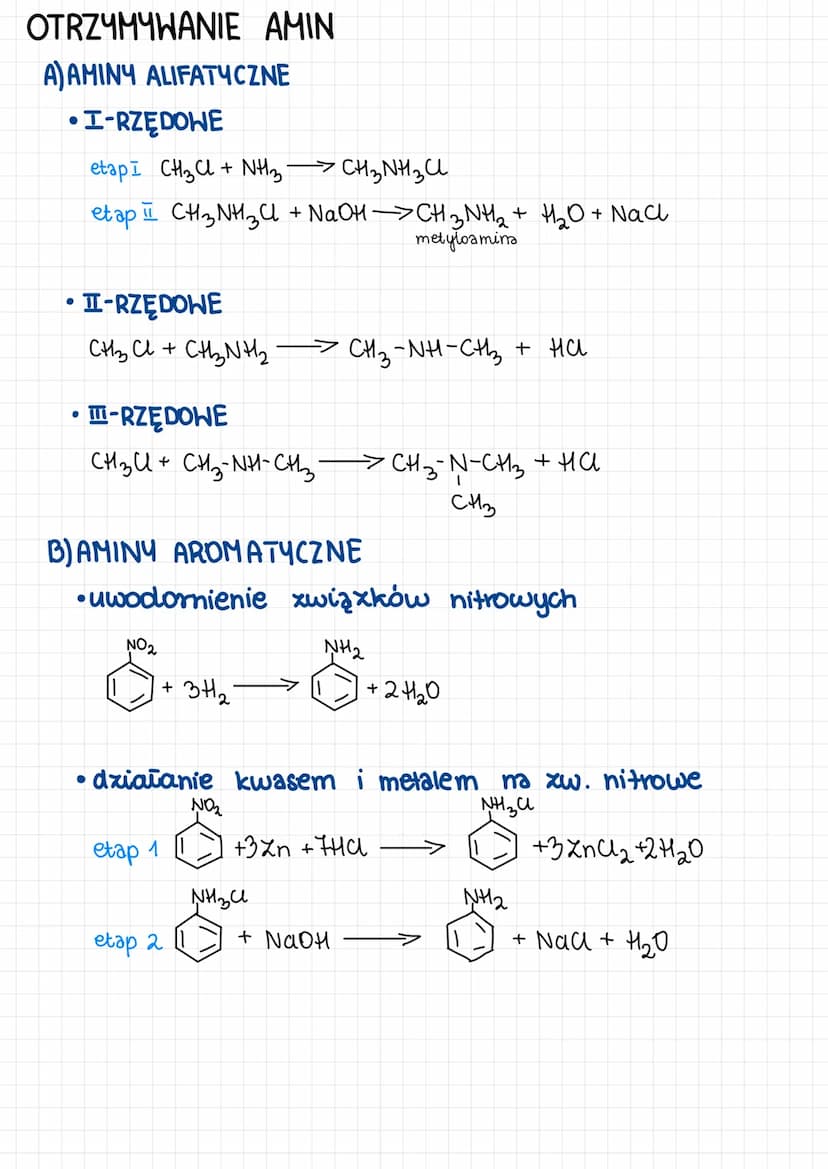 OTRZYMYWANIE AMIN
A) AMINY ALIFATYCZNE
• I-RZĘDOWE
etap I CH₃Cl + NH₃ ⟶ CH₃NH₃Cl
etap II CH₃NH₃Cl + NaOH ⟶ CH₃NH₂ + H₂O + NaCl
metyloamina
• II-RZĘDOWE
CH₃Cl + CH₃NH₂ ⟶ CH₃-NH-CH₃ + HCl
• III-RZĘDOWE
CH₃Cl + CH₃-NH-CH₃ ⟶ CH₃-N-CH₃ + HCl
CH₃
B) AMINY AROMATYCZNE
• uwodornienie związków nitrowych
NO₂ NH₂
+ 3H₂ ⟶ + 2H₂O
• działanie kwasem i metalem na zw. nitrowe
NO₂ NH₃Cl
etap 1 +3Zn + 7HCl ⟶ +3ZnCl₂ +2H₂O
NH₃Cl NH₂
etap 2 + NaOH ⟶ + NaCl + H₂O